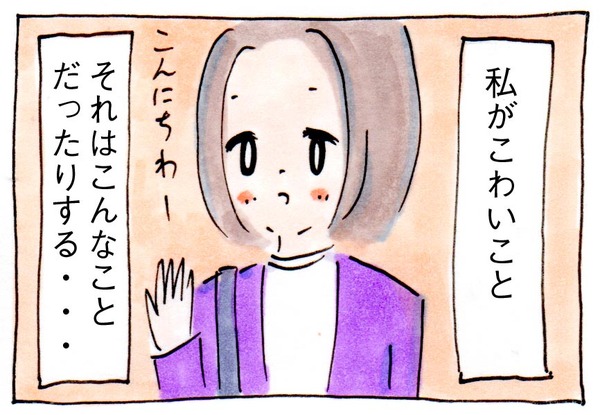 私がこわいこと
こんにちわー
それはこんなこと
だったりする・・・